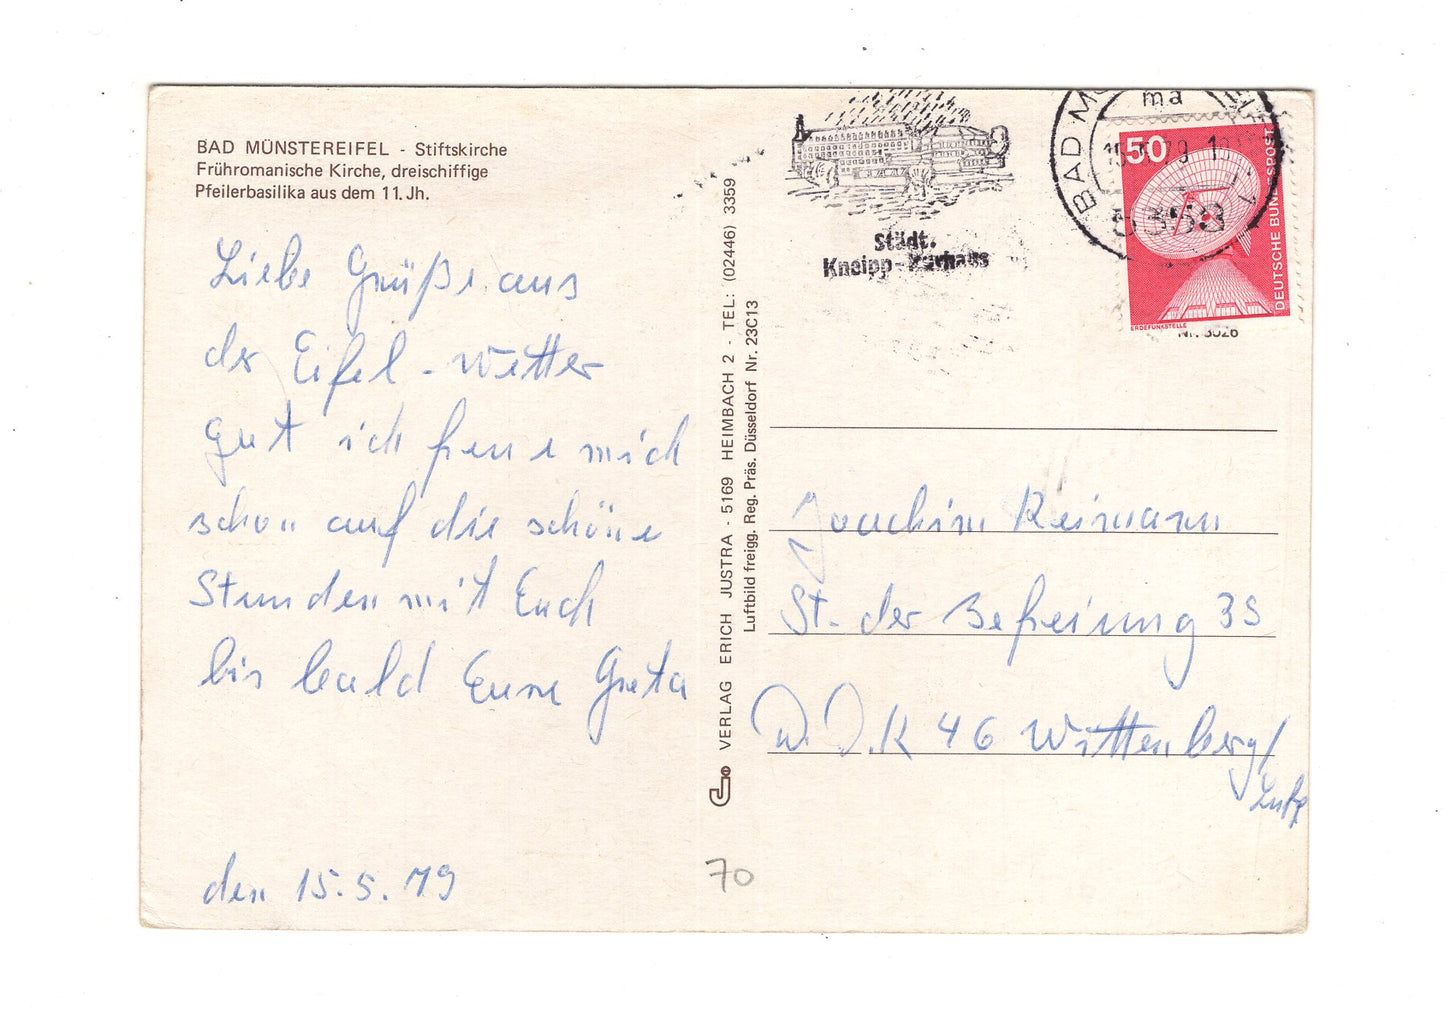 BAD MÜNSTEREIFEL - Stiftskirche
Frühromanische Kirche, dreischiffige
Pfeilerbasilika aus dem 11. Jh.
Liebe Grüße aus
der Eifel - Wetter
gut ich freue mich
schon auf die schöne
Stunden mit Euch
bis bald Eure Greta
den 15.5.79
VERLAG ERICH JUSTRA - 5169 HEIMBACH 2 - TEL: (02446) 3359
Luftbild freigg. Reg. Präs. Düsseldorf Nr. 23C13
Städt.
Kneipp-Kurhaus
BAD
ma
5358
50
DEUTSCHE BUNDESPOST
ERDEFUNKSTELLE
Nr. 3526
Joachim Reimann
St. der Befreiung 35
46 Wittenberg/
70